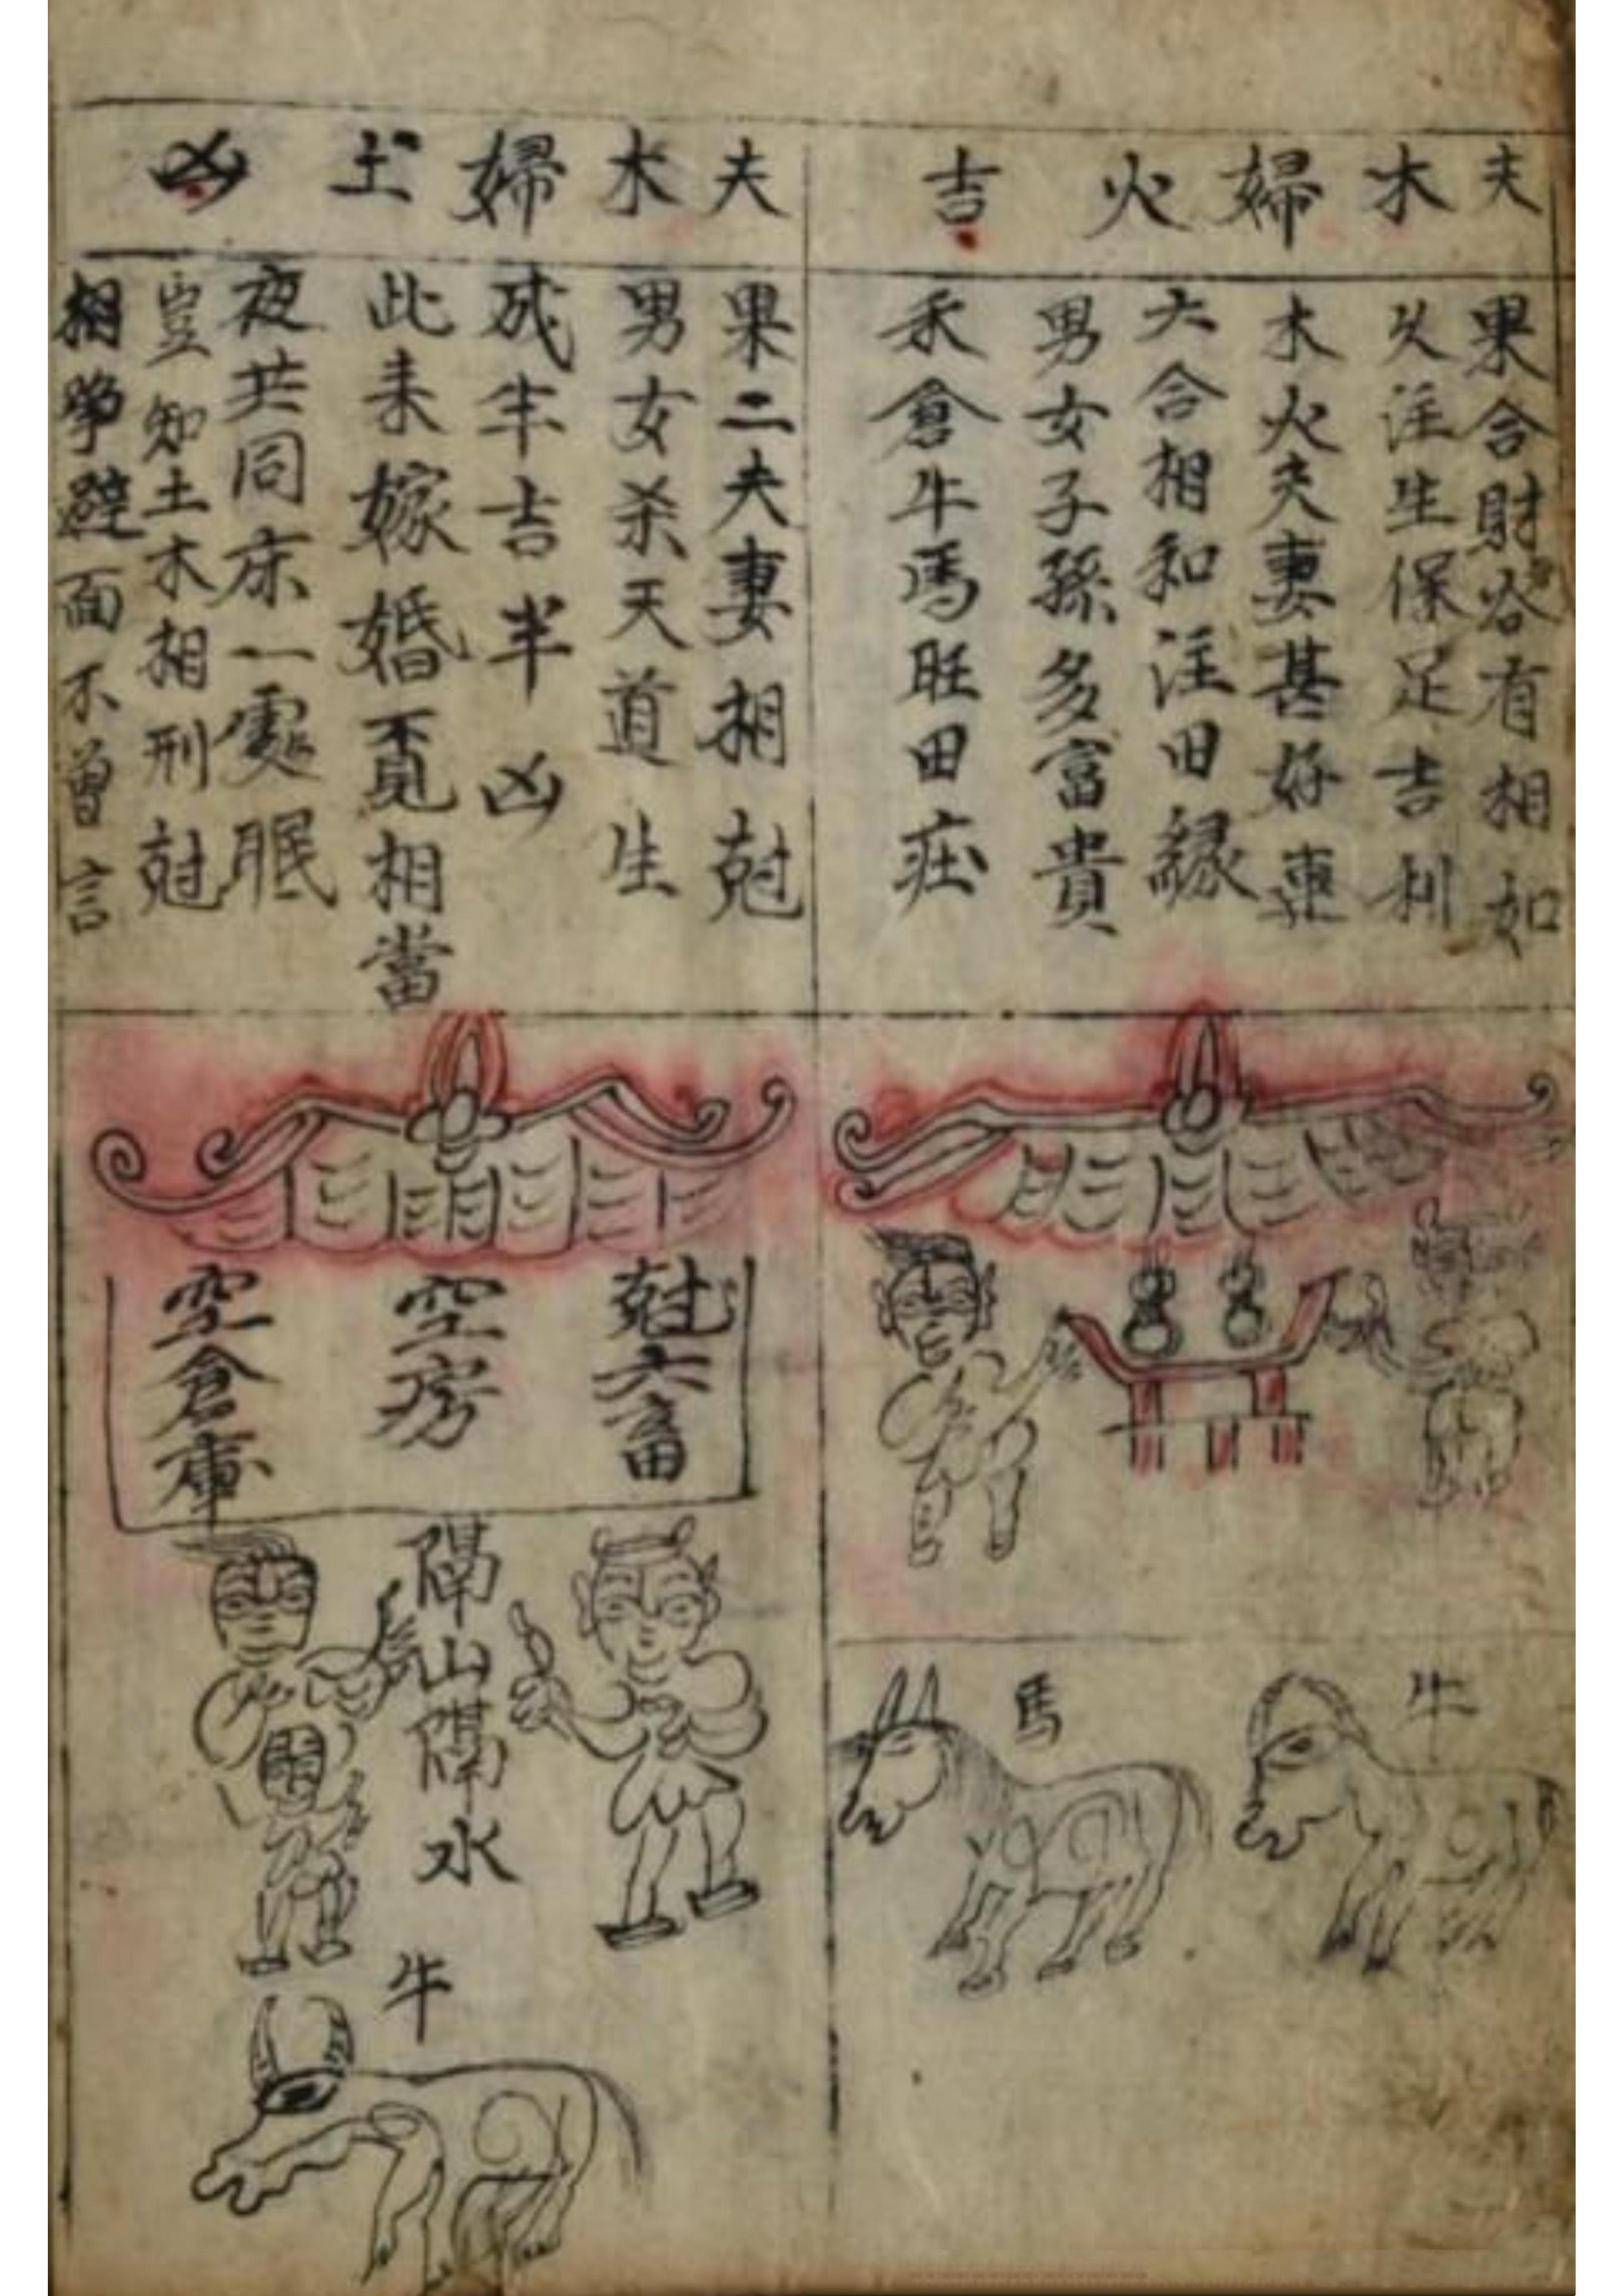 夫木婦火吉
果合財谷有相如
火注生保足吉利
木火夫妻甚好連
六合相和注田緣
男女子孫多富貴
禾倉牛馬旺田庄
牛
馬
夫木婦土凶
果二夫妻相尅
男女杀天道生
成半吉半凶
此耒嫁婚覔相當
夜共同床一處眠
豈知土木相刑尅
相爭避面不曾言
尅六畜
空房
空倉庫
隔山隔水
牛